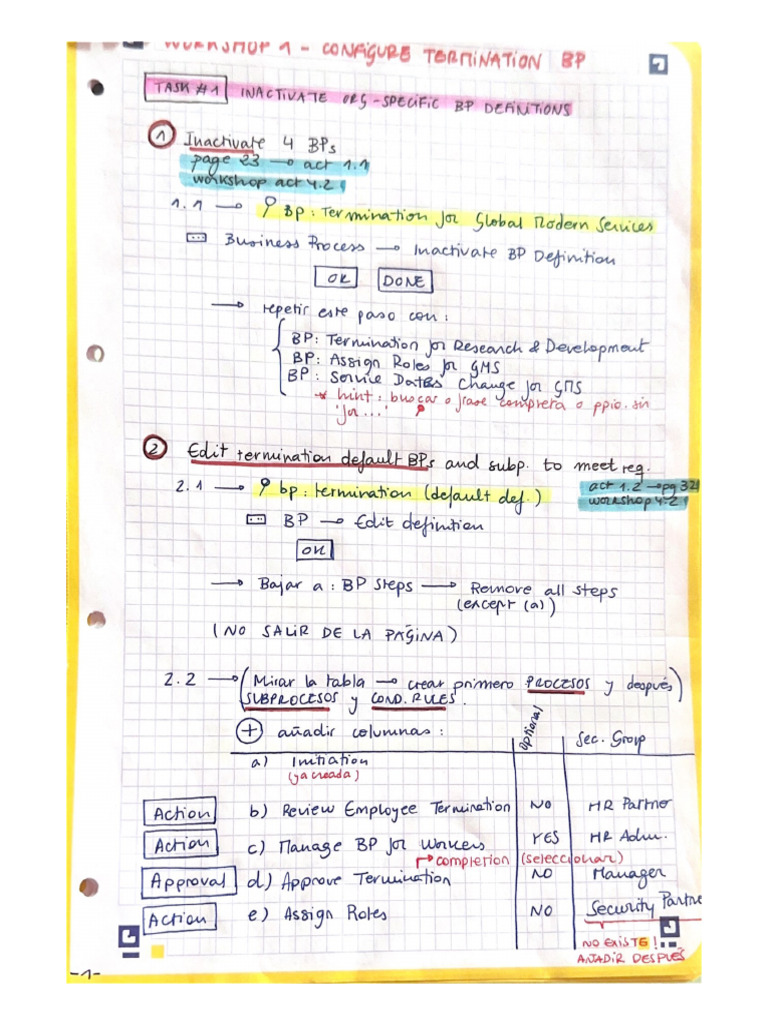 WORKSHOP 1 - CONFIGURE TERMINATION BP
TASK #1 INACTIVATE ORG-SPECIFIC BP DEFINITIONS
1 Inactivate 4 BPs
page 23 → act 1.1
workshop act 4.2
1.1 → BP: Termination for Global Modern Services
Business Process → Inactivate BP Definition
OK DONE
→ repetir este paso con:
BP: Termination for Research & Development
BP: Assign Roles for GMS
BP: Service Dates Change for GMS
* hint: buscar o frase completa o ppio. sin
'for...'
2 Edit termination default BPs and subp. to meet req.
2.1 → bp: termination (default def.)
act 1.2 → pg 32
workshop 4.2
BP → Edit definition
OK
→ Bajar a: BP Steps → Remove all steps
(except (a))
(NO SALIR DE LA PÁGINA)
2.2 → (Mirar la tabla → crear primero PROCESOS y después)
SUBPROCESOS y COND. RULES.
+ añadir columnas: Optional Sec. Group
a) Initiation
(ya creada)
Action b) Review Employee Termination NO HR Partner
Action c) Manage BP for Workers YES HR Adm.
completion (seleccionar)
Approval d) Approve Termination NO Manager
Action e) Assign Roles NO Security Partne
NO EXISTE!
AÑADIR DESPUÉS
-1-